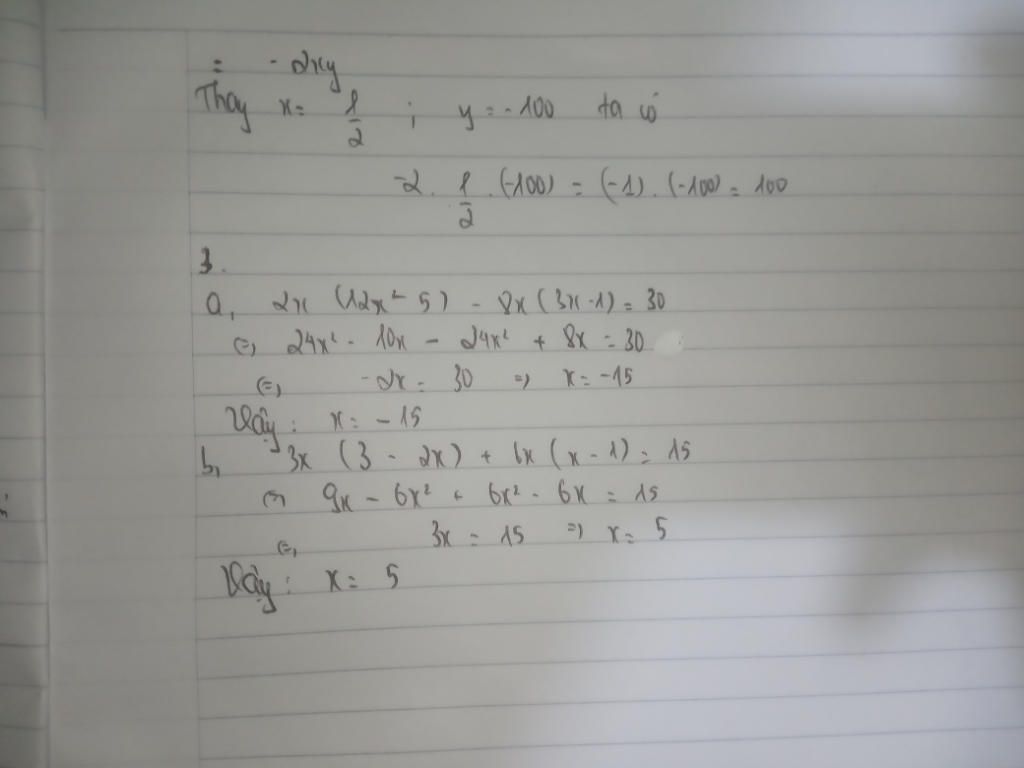 = -2xy
Thay x = 1/2 ; y = -100 ta có
-2 . 1/2 . (-100) = (-1) . (-100) = 100
3.
a, 2x (12x² - 5) - 8x (3x - 1) = 30
(=) 24x² - 10x - 24x² + 8x = 30
(=) -2x = 30 => x = -15
Vậy : x = -15
b, 3x (3 - 2x) + 6x (x - 1) = 15
(=) 9x - 6x² + 6x² - 6x = 15
(=) 3x = 15 => x = 5
Vậy : x = 5